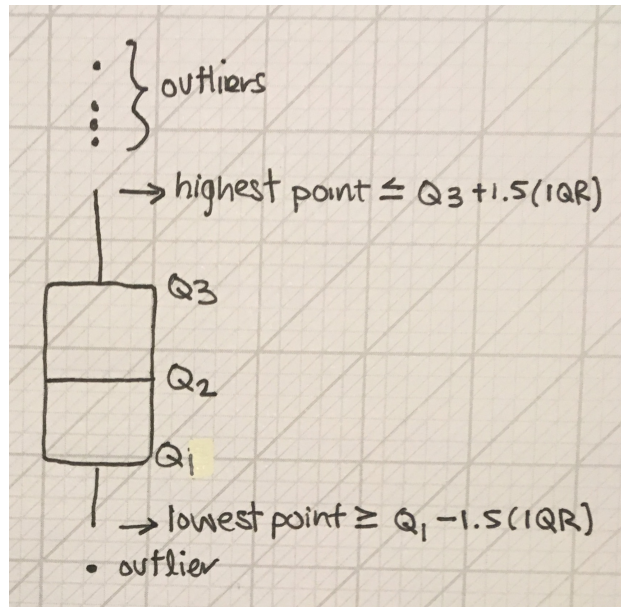 outliers
highest point ≤ Q3 +1.5(IQR)
Q3
Q2
Q1
lowest point ≥ Q1 -1.5(IQR)
outlier